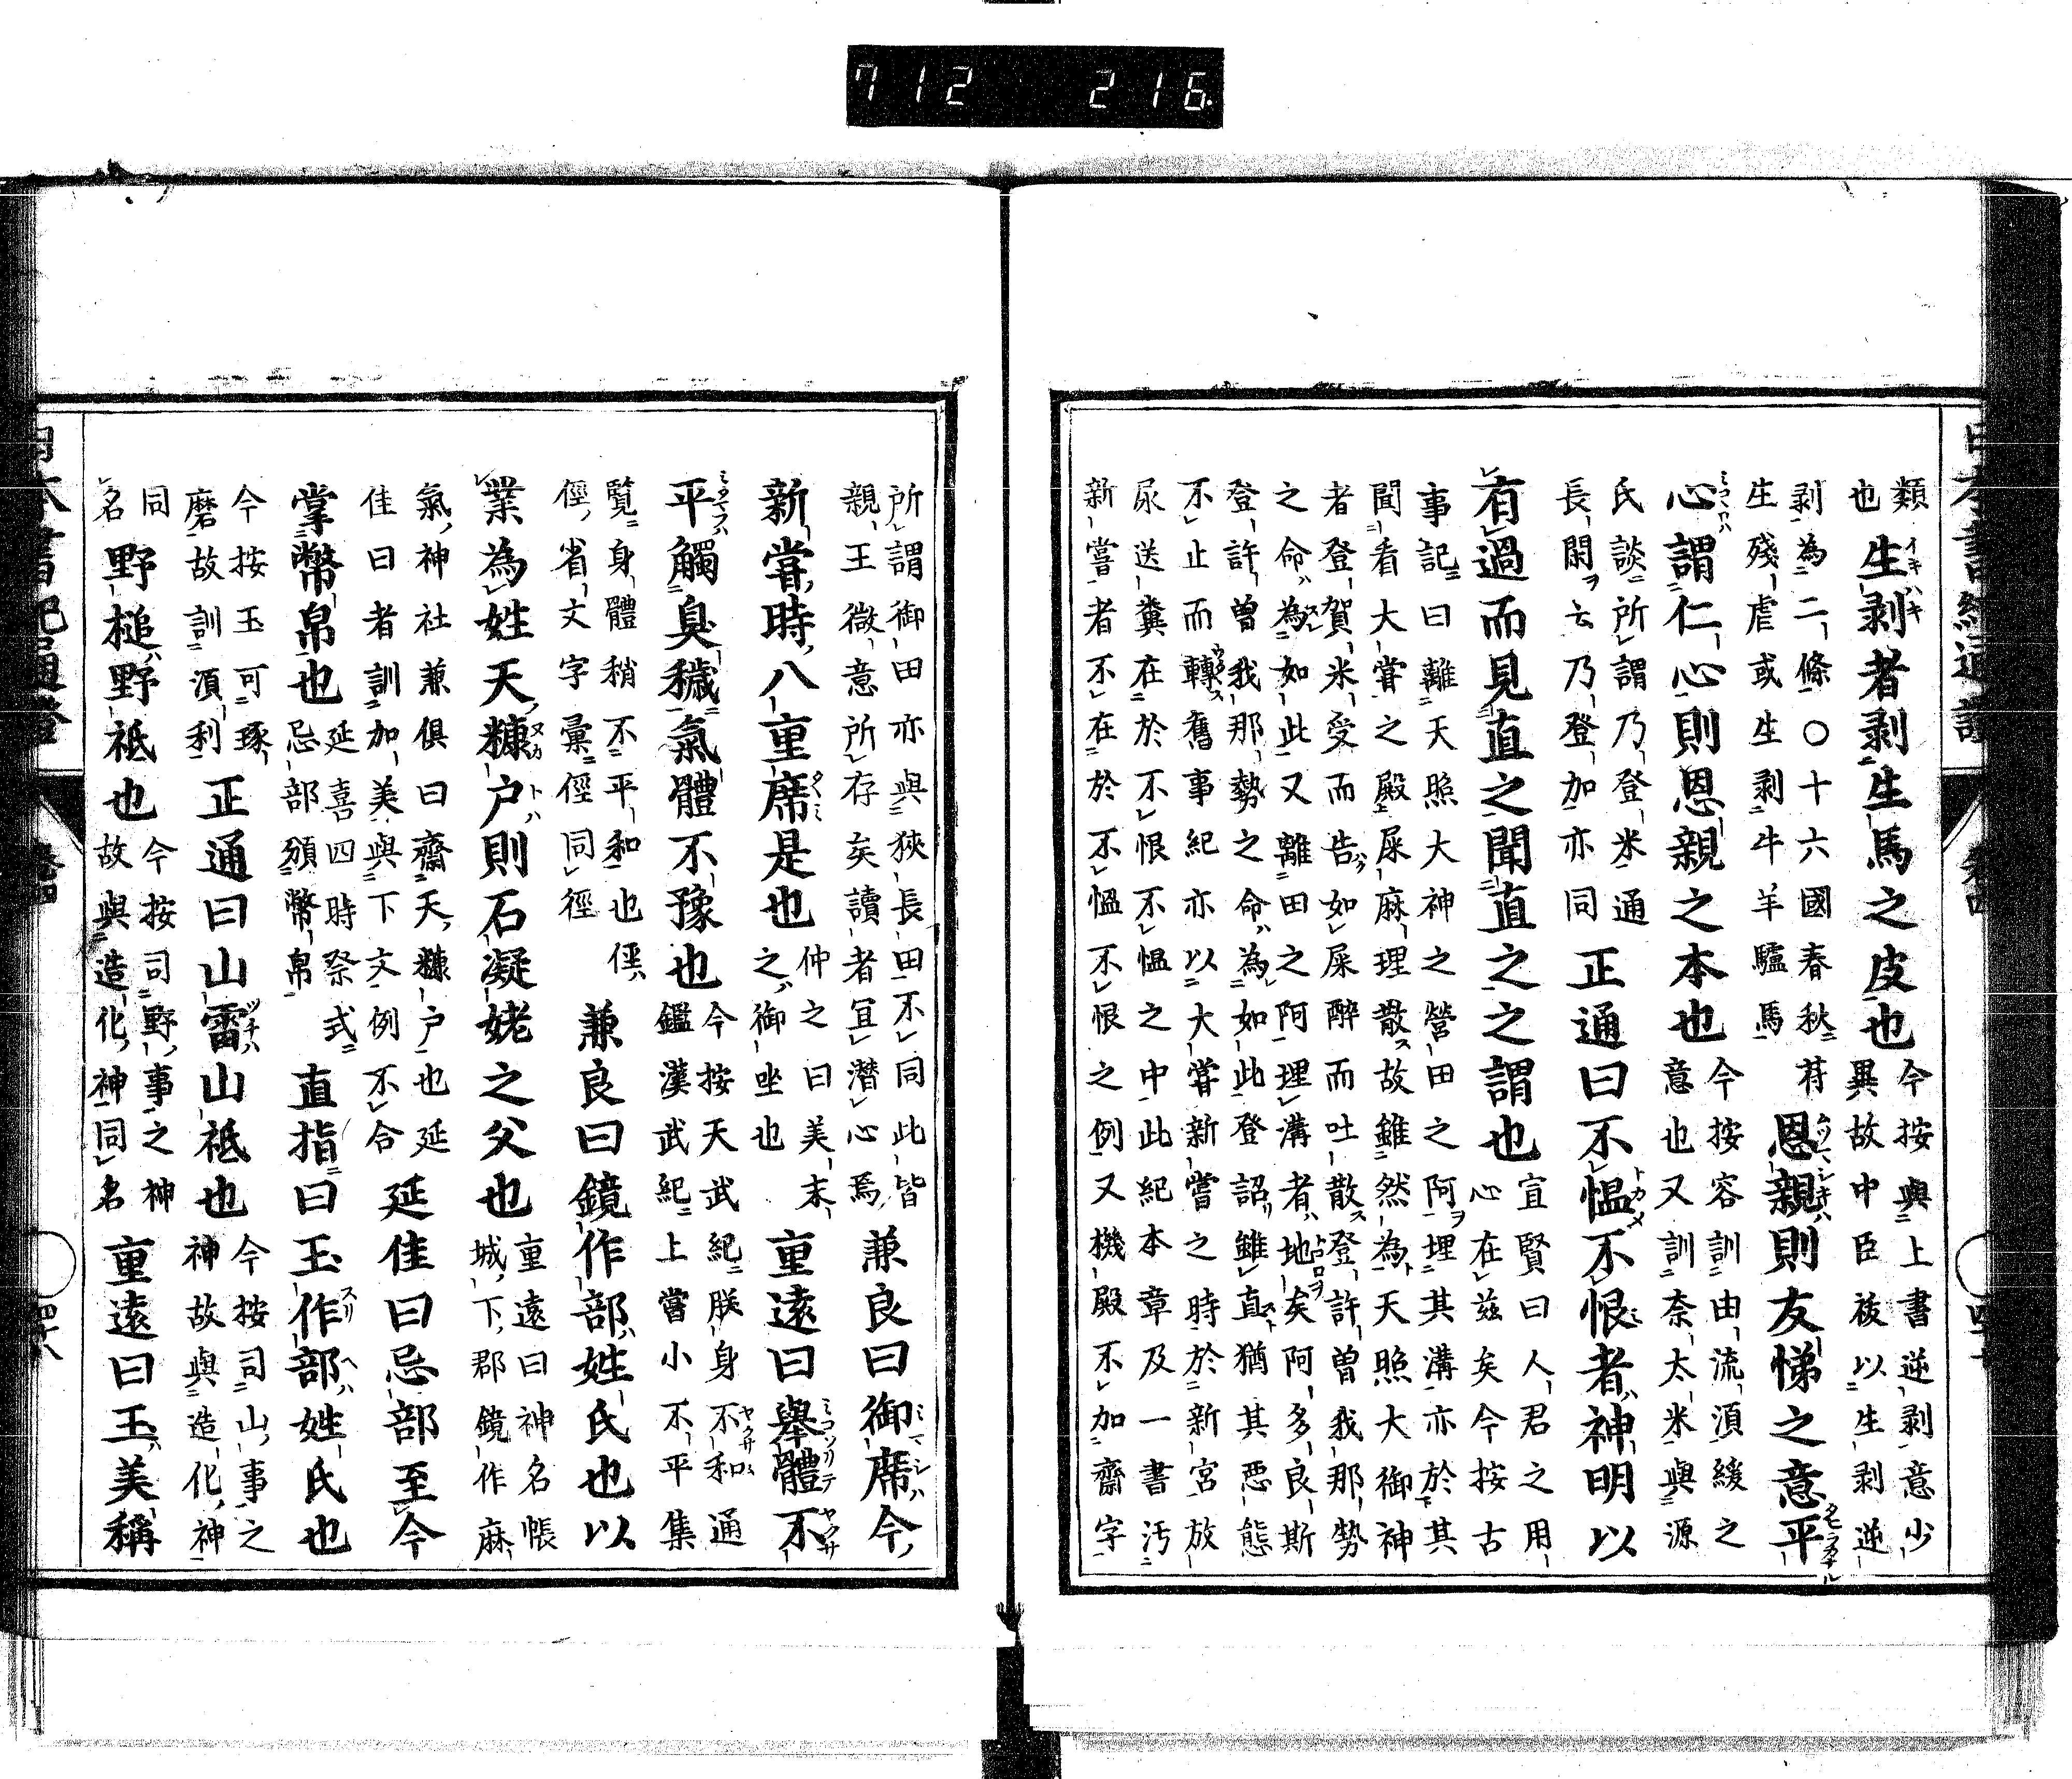 類
也
生剥者剥生馬之皮也
今按與上書逆剥意少
異故中臣祓以生剥逆
剥為二條〇十六國春秋苻
生殘虐或生剥牛羊驢馬
恩親則友悌之意平
心謂仁心則恩親之本也
今按容訓由流湏緩之
意也又訓奈太米與源
氏談所謂乃登米通
長閑ヲ云乃登加亦同
正通曰不慍不恨者神明以
有過而見直之聞直之之謂也
宜賢曰人君之用
心在兹矣今按古
事記曰離天照大神之營田之阿埋其溝亦於其
聞看大嘗之殿屎麻理散故雖然為天照大御神
者登賀米受而告如屎醉而吐散登許曽我那勢
之命為如此又離田之阿埋溝者地矣阿多良斯
登許曽我那勢之命為如此登詔雖直猶其惡態
不止而轉舊事紀亦以大嘗新嘗之時於新宮放
尿送糞在於不恨不慍之中此紀本章及一書汚
新嘗者不在於不慍不恨之例又機殿不加齋字
所謂御田亦與狹長田不同此皆
親王微意所存矣讀者宜潜心焉
兼良曰御席今
新嘗時八重席是也
仲之曰美末
之御坐也
重遠曰擧體不
平觸臭穢氣體不豫也
今按天武紀朕身不和通
鑑漢武紀上嘗小不平集
覽身體稍不平和也
俓省文字彙俓同徑
兼良曰鏡作部姓氏也以
業為姓天糠戶則石凝姥之父也
重遠曰神名帳
城下郡鏡作麻
氣神社兼俱曰齋天糠戶也延
佳曰者訓加美與下文例不合
延佳曰忌部至今
掌幣帛也
延喜四時祭式
忌部頒幣帛
直指曰玉作部姓氏也
今按玉可琢
磨故訓湏利
正通曰山雷山祗也
今按司山事之
神故與造化神
同
名
野槌野祗也
今按司野事之神
故與造化神同名
重遠曰玉美稱
712 216